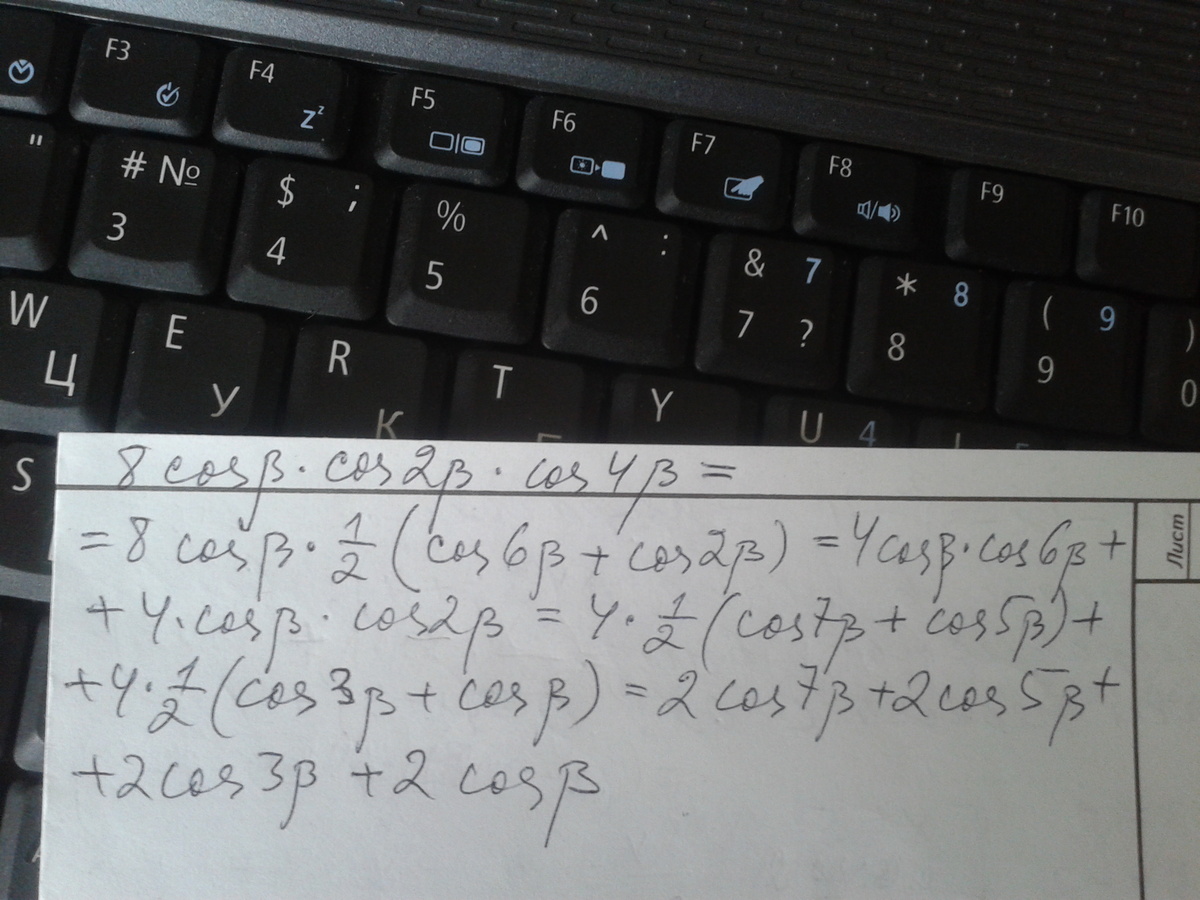 F3 F4 F5 F6 F7 F8 F9 F10
zᶻ
" # № $ ; % ^ : & 7 * 8 ( 9 )
3 4 5 6 7 ? 8 9 0
W E R T Y U 4
Ц У К
S
8 cosβ · cos2β · cos4β =
= 8 cosβ · 1/2 (cos6β + cos2β) = 4cosβ · cos6β +
+ 4 · cosβ · cos2β = 4 · 1/2 (cos7β + cos5β) +
+ 4 · 1/2 (cos3β + cosβ) = 2cos7β + 2cos5β +
+ 2cos3β + 2 cosβ
Лист